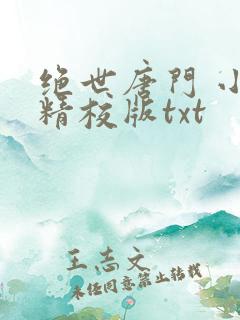 绝世唐门 小
精校版txt
王志文
未经同意禁止转载